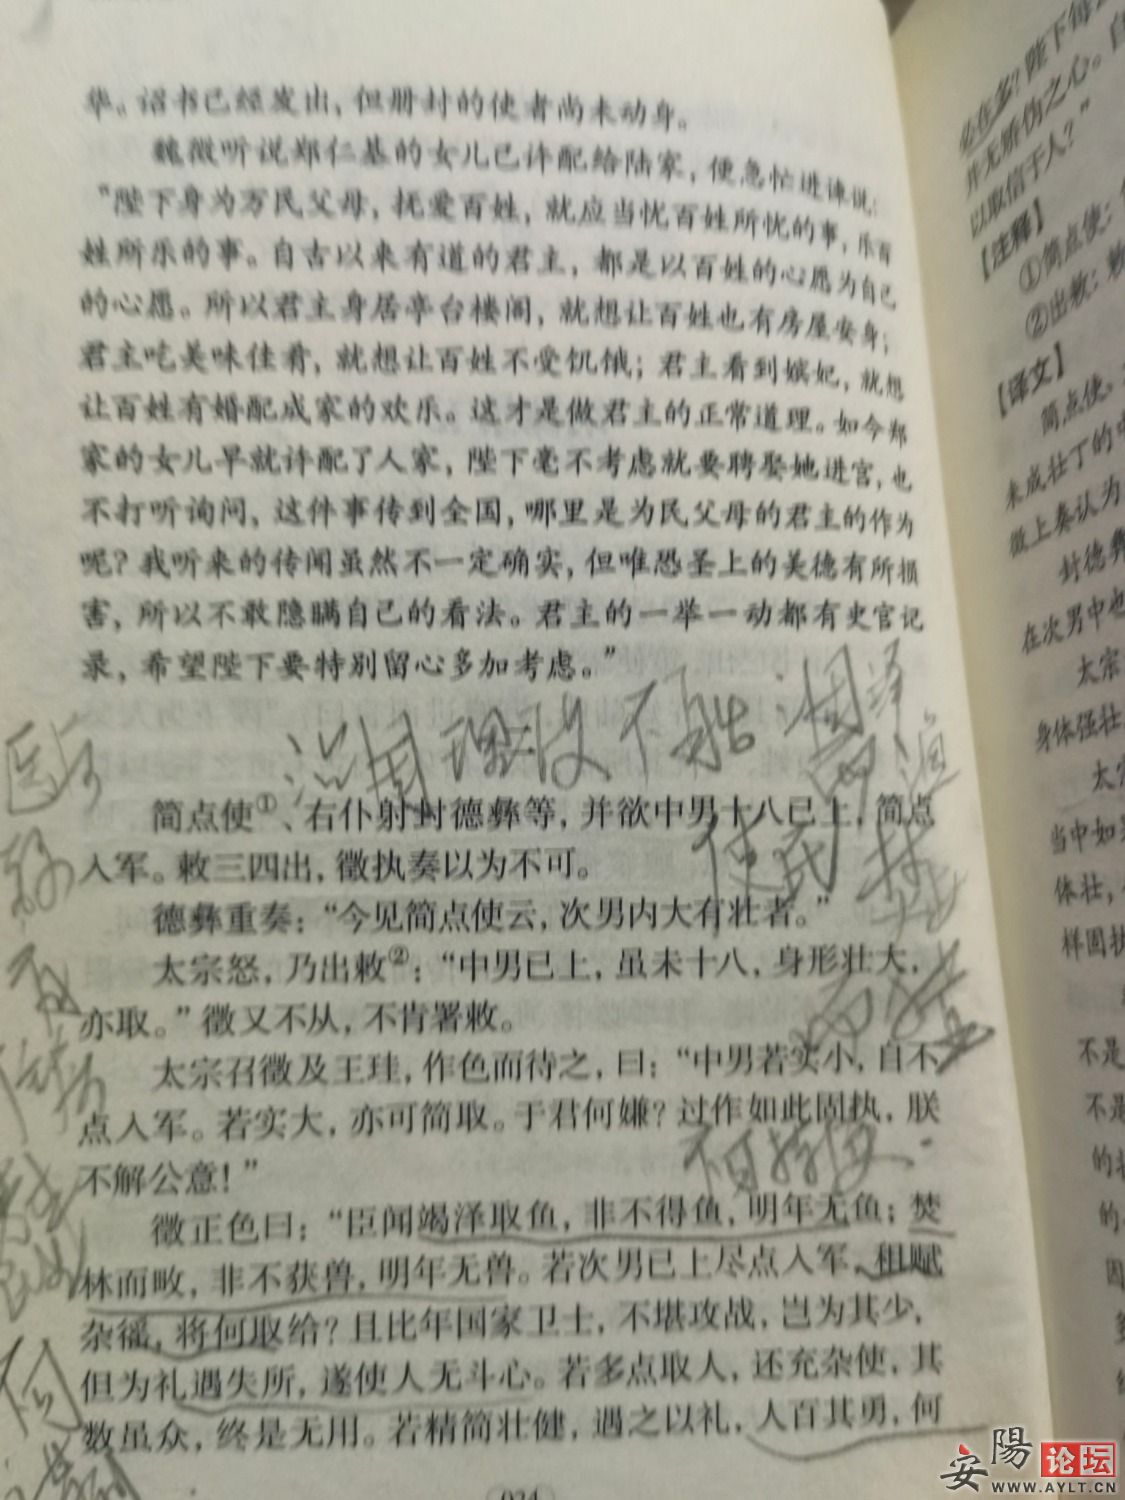 华。诏书已经发出，但册封的使者尚未动身。
魏徵听说郑仁基的女儿已许配给陆家，便急忙进谏说：
“陛下身为万民父母，抚爱百姓，就应当忧百姓所忧的事，乐百
姓所乐的事。自古以来有道的君主，都是以百姓的心愿为自己
的心愿。所以君主身居亭台楼阁，就想让百姓也有房屋安身；
君主吃美味佳肴，就想让百姓不受饥饿；君主看到嫔妃，就想
让百姓有婚配成家的欢乐。这才是做君主的正常道理。如今郑
家的女儿早就许配了人家，陛下毫不考虑就要聘娶她进宫，也
不打听询问，这件事传到全国，哪里是为民父母的君主的作为
呢？我听来的传闻虽然不一定确实，但唯恐圣上的美德有所损
害，所以不敢隐瞒自己的看法。君主的一举一动都有史官记
录，希望陛下要特别留心多加考虑。”
治国理政不能涸泽
而渔
简点使①、右仆射封德彝等，并欲中男十八已上，简点
入军。敕三四出，徵执奏以为不可。
德彝重奏：“今见简点使云，次男内大有壮者。”
太宗怒，乃出敕②：“中男已上，虽未十八，身形壮大，
亦取。”徵又不从，不肯署敕。
太宗召徵及王珪，作色而待之，曰：“中男若实小，自不
点入军。若实大，亦可简取。于君何嫌？过作如此固执，朕
不解公意！”
徵正色曰：“臣闻竭泽取鱼，非不得鱼，明年无鱼；焚
林而畋，非不获兽，明年无兽。若次男已上尽点入军，租赋
杂徭，将何取给？且比年国家卫士，不堪攻战，岂为其少，
但为礼遇失所，遂使人无斗心。若多点取人，还充杂使，其
数虽众，终是无用。若精简壮健，遇之以礼，人百其勇，何
024
必在多？陛下每
并无矫伪之心。自
以取信于人？”
【注释】
①简点使：
②出敕：敕
【译文】
简点使、
未成壮丁的中
徵上奏认为
封德彝
在次男中也
太宗
身体强壮
太宗
当中如果
体壮，
样固执
不是
不是
的
的
安陽论坛
WWW.AYLT.CN